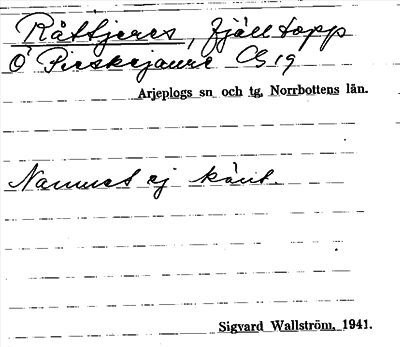 Råttjeres, fjälltopp
Ö Pieskejaure Cg 19
Arjeplogs sn och tg, Norrbottens län.
Namnet ej känt.
Sigvard Wallström, 1941.